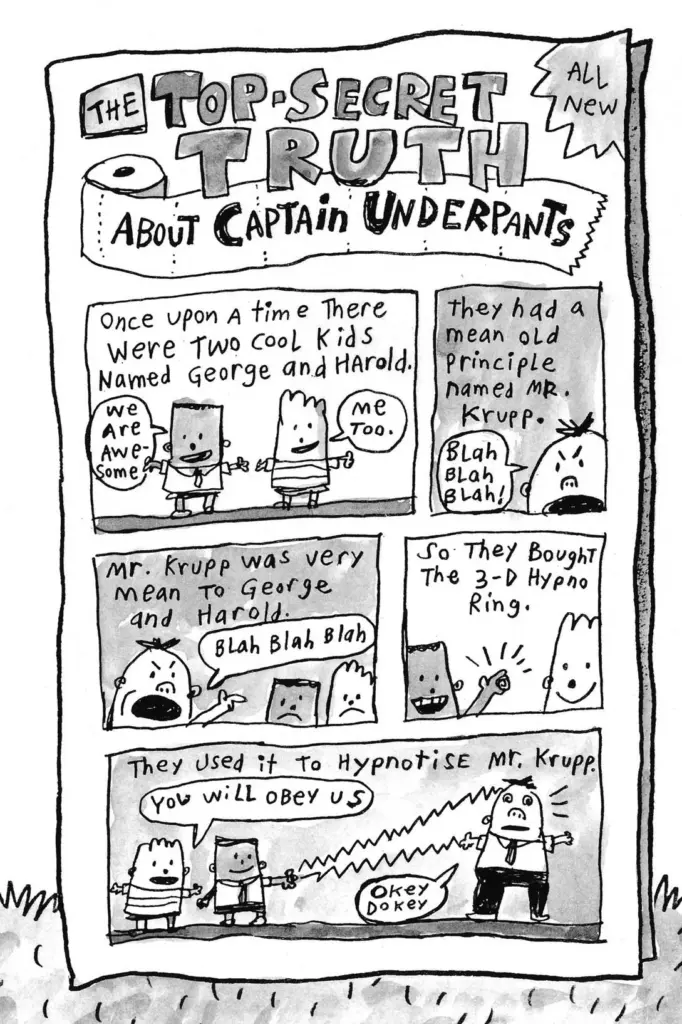 THE TOP-SECRET
TRUTH
ALL
NEW
ABOUT CAPTAIN UNDERPANTS
Once upon A time There
were Two cool Kids
Named George and HArold.
We
Are
Awe-
some
Me
Too.
They had a
mean old
principle
named MR.
Krupp.
BLAH
BLAH
BLAH!
Mr. Krupp was very
mean To George
and Harold.
BLAH BLAH BLAH
So They Bought
The 3-D Hypno
Ring.
They used it to HYPNOTISE Mr. Krupp.
YOU WILL OBEY US
OKEY
DOKEY